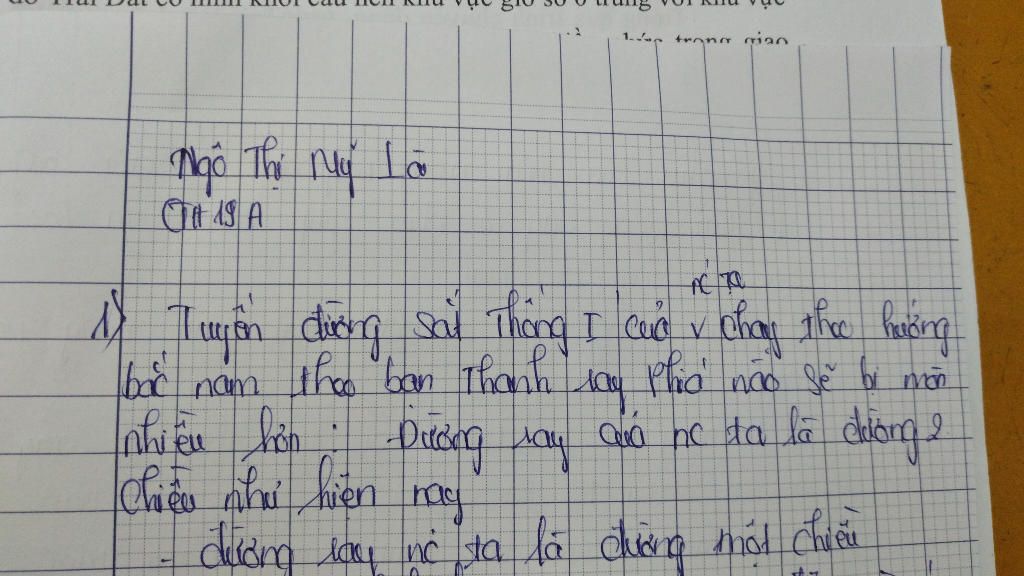 do Trái Đất có hình khối cầu nên khu vực gió số 6 trùng với khu vực
trong giao
Ngô Thị Mỹ Là
GTH 19 A
nc ta
1) Tuyến đường sắt Thống I của v chạy theo hướng
bắc nam theo bạn thanh ray phía nào sẽ bị mòn
nhiều hơn : - Đường ray của nc ta là đường 2
chiều như hiện nay
- đường ray nc ta là đường một chiều